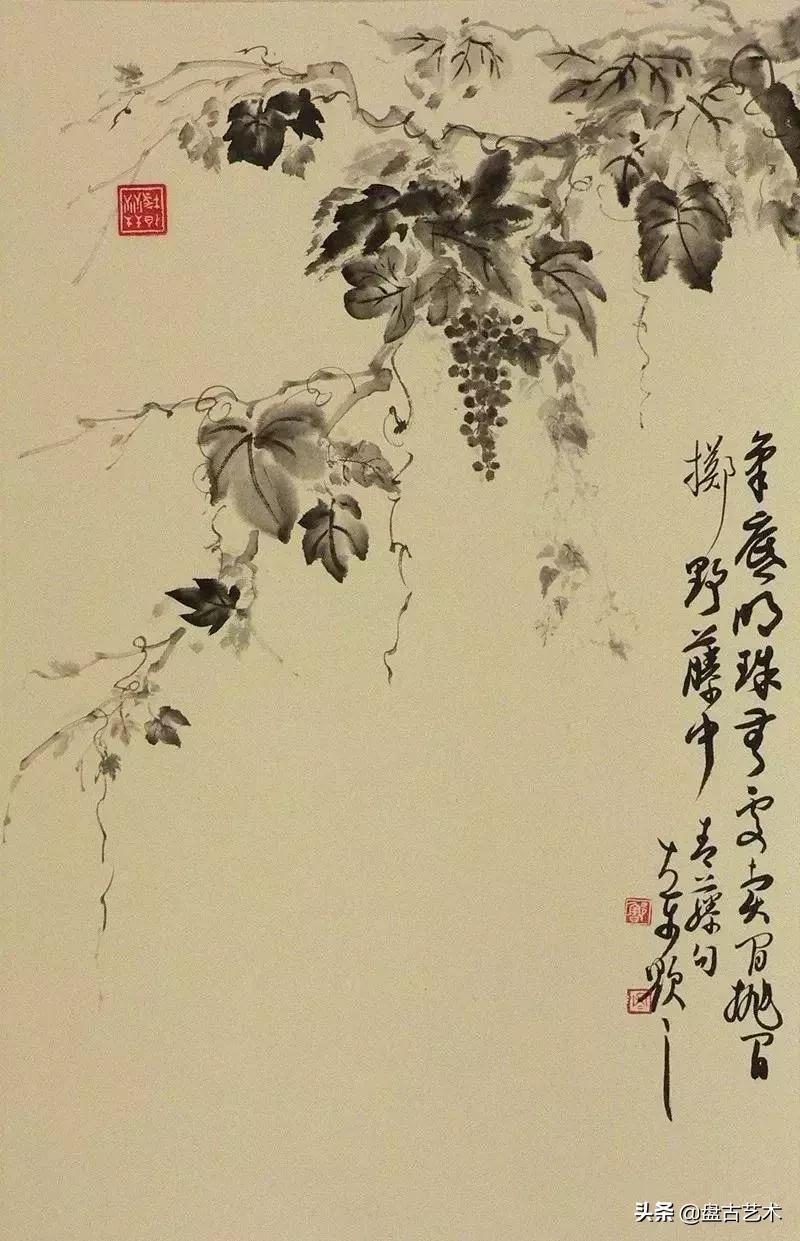 筆底明珠無處賣閒抛閒
擲野藤中
青藤句
題之
头条 @盘古艺术